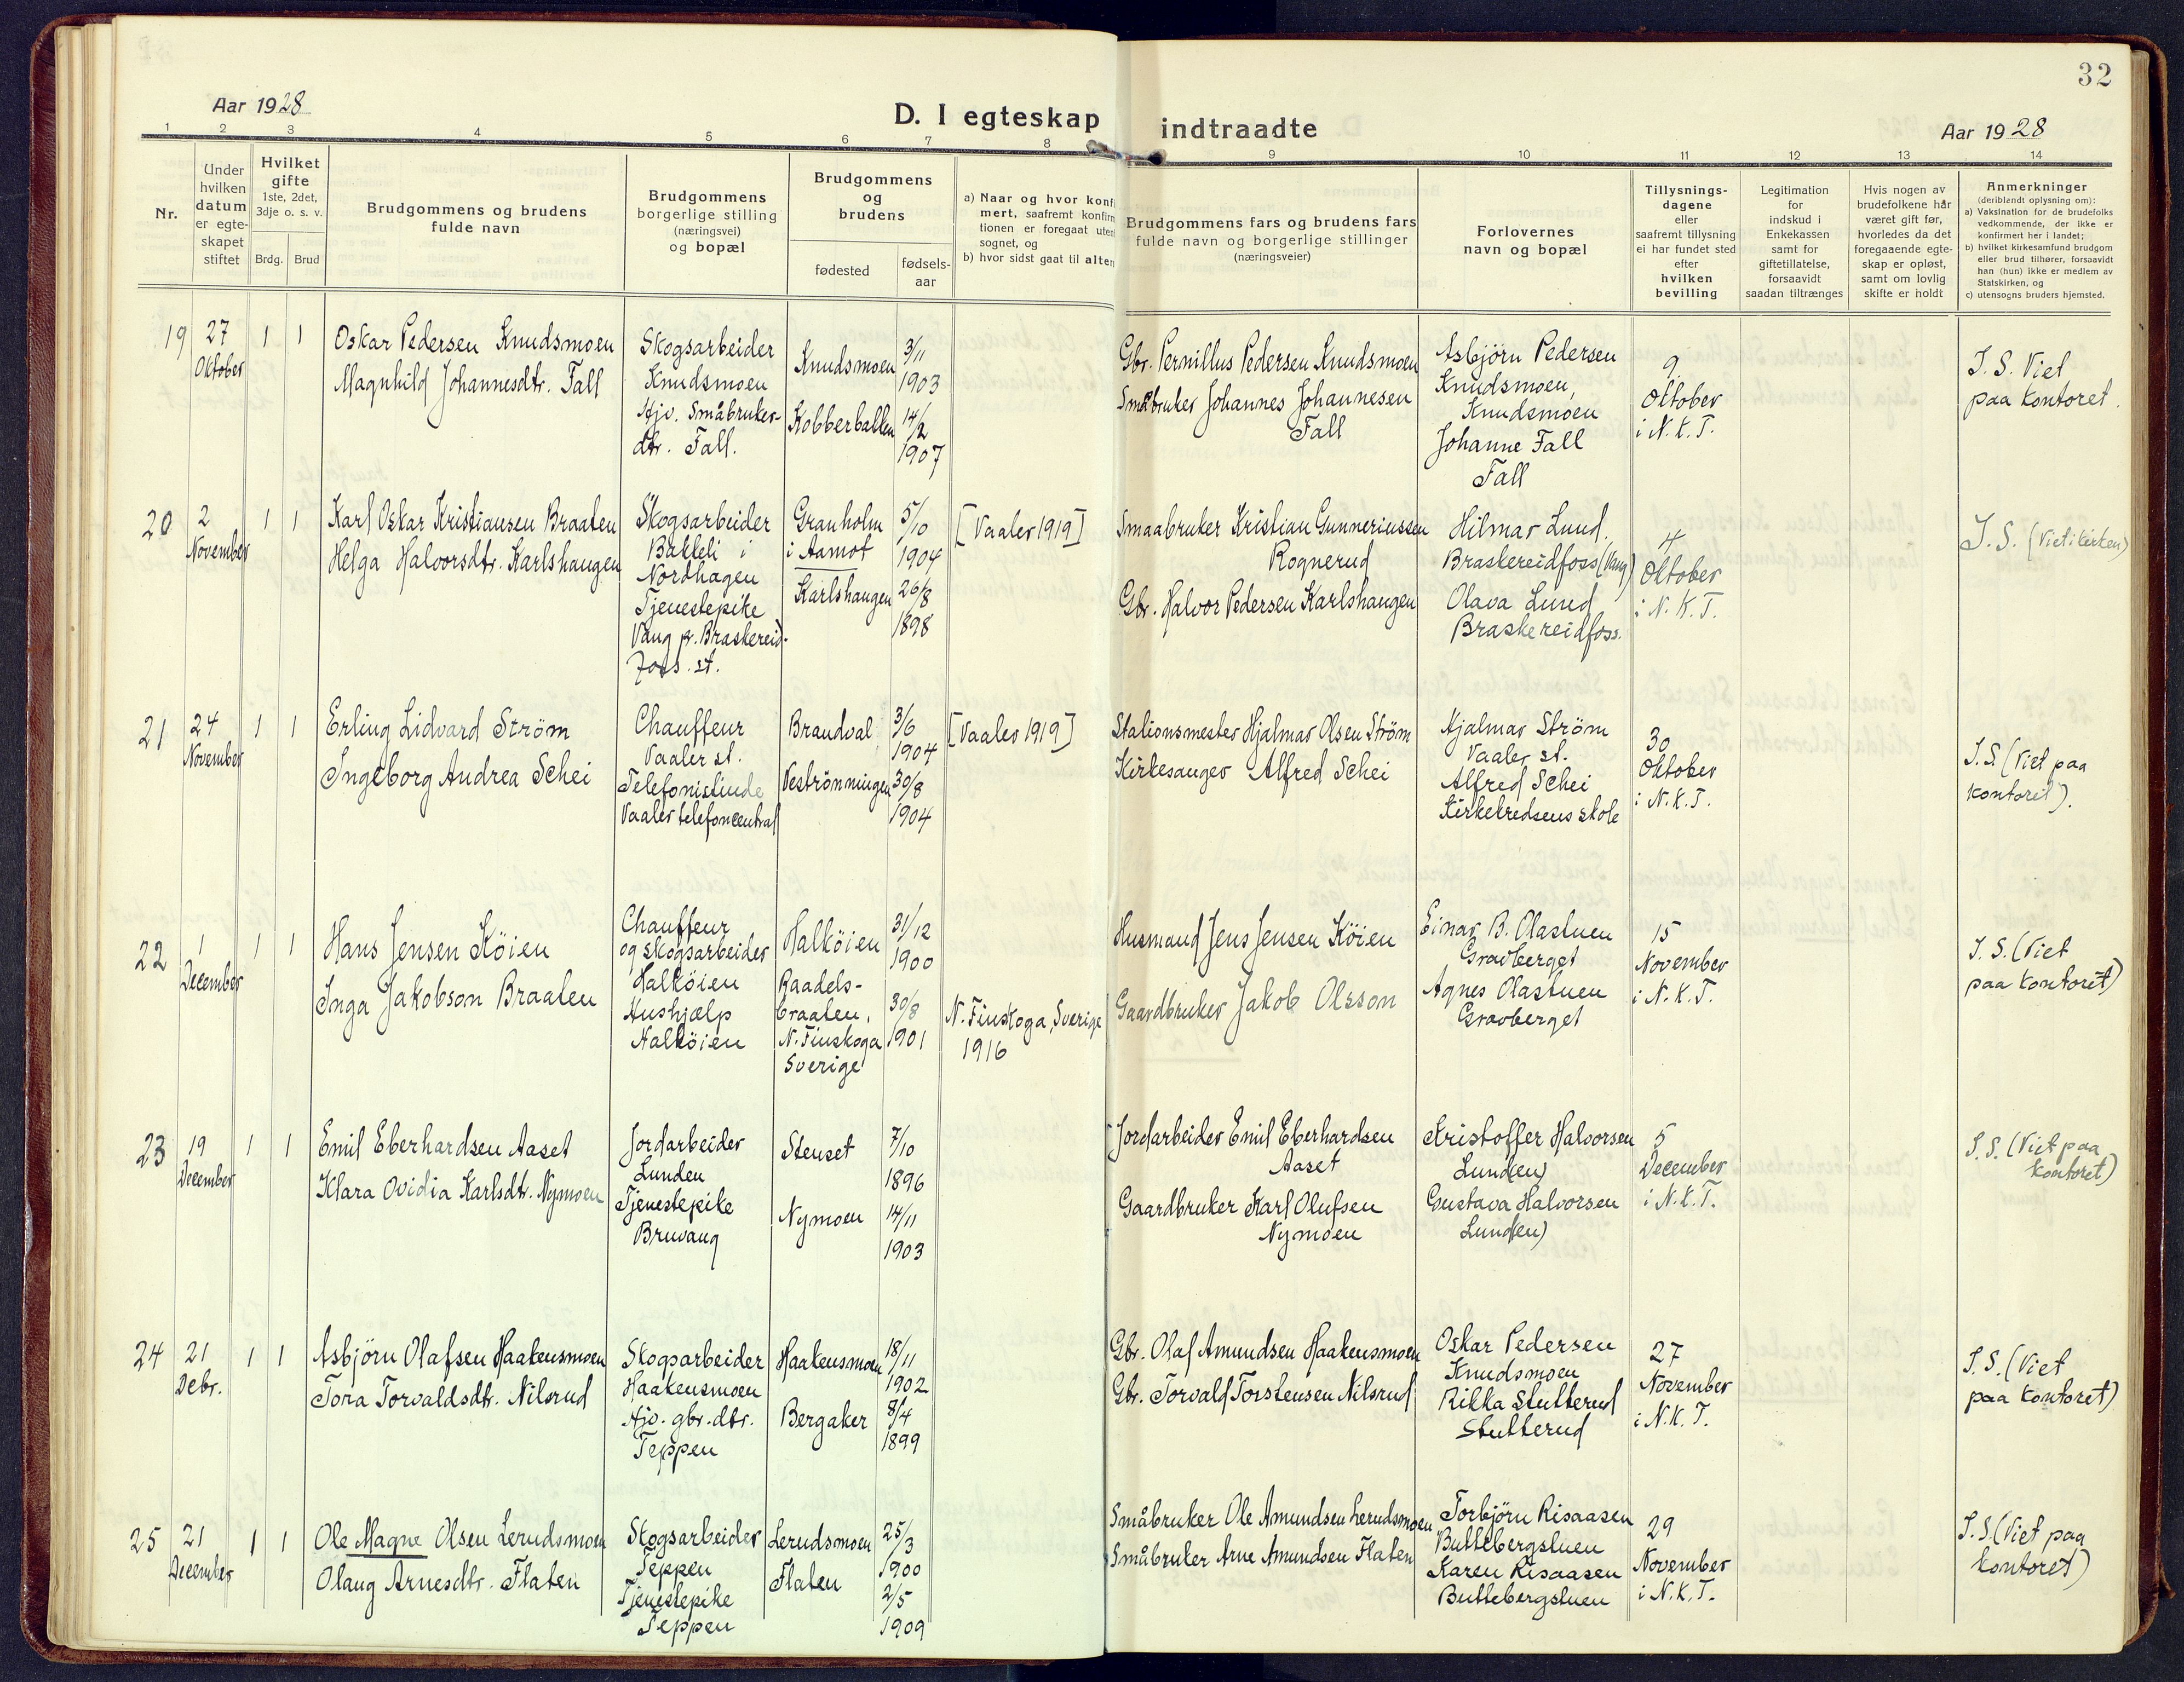 32
Aar 1928
D. I egteskap indtraadte
Aar 1928
1 2 3 4 5 6 7 8 9 10 11 12 13 14
Nr.
Under
hvilken
datum
er egte-
skapet
stiftet
Hvilket
gifte
1ste, 2det,
3dje o. s. v.
Brdg. Brud
Brudgommens og brudens
fulde navn
Brudgommens
borgerlige stilling
(næringsvei)
og bopæl
Brudgommens
og
brudens
fødested
fødsels-
aar
a) Naar og hvor konfi
mert, saafremt konfirm
tionen er foregaat uten
sognet, og
b) hvor sidst gaat til alters
Brudgommens fars og brudens fars
fulde navn og borgerlige stillinger
(næringsveier)
Forlovernes
navn og bopæl
Tillysnings-
dagene
eller
saafremt tillysning
ei har fundet sted
efter
hvilken
bevilling
Legitimation
for
indskud i
Enkekassen
samt for
giftetillatelse,
forsaavidt
saadan tiltrænges
Hvis nogen av
brudefolkene har
været gift før,
hvorledes da det
foregaaende egte-
skap er opløst,
samt om lovlig
skifte er holdt
Anmerkninger
(deriblandt oplysning om):
a) Vaksination for de brudefolks
vedkommende, der ikke er
konfirmert her i landet;
b) hvilket kirkesamfund brudgom
eller brud tilhører, forsaavidt
han (hun) ikke er medlem av
Statskirken, og
c) utensogns bruders hjemsted.
19
27
Oktober
1 1
Oskar Pedersen Knudsmoen
Magnhild Johannesdtr. Fall
Skogsarbeider
Knudsmoen
Hjv. Småbruker-
dtr. Fall.
Knudsmoen
Kobberbakken
3/11
1903
14/2
1907
Gbr. Pernillus Pedersen Knudsmoen
Småbruker Johannes Johannesen
Fall
Asbjörn Pedersen
Knudsmoen,
Knudsmoen
Johanne Fall
Fall
9
Oktober
i N. K. T.
I. S. Viet
paa kontoret.
20
2
November
1 1
Karl Oskar Kristiansen Braaten
Helga Halvorsdtr. Karlshaugen
Skogsarbeider
Bakkeli i
Nordhagen
Tjenestepike
Vang pr. Braskereid-
foss. st.
Granholm
i Aamot
Karlshaugen
5/10
1904
26/8
1898
[Vaaler 1919]
Smaabruker Kristian Gunneriussen
Rognerud
Gbr. Halvor Pedersen Karlshaugen
Hilmar Lund.
Braskereidfoss (Vang)
Olava Lund
Braskereidfoss.
4
Oktober
i N. K. T.
I. S. (Viet i kirken)
21
24
November
1 1
Erling Lidvard Ström
Ingeborg Andrea Schei
Chauffeur
Vaaler st.
Telefonistinde
Vaaler telefoncentral
Brandval
Veströmningen
3/6
1904
30/8
1904
[Vaaler 1919]
Stationsmester Hjalmar Olsen Ström
Kirkesanger Alfred Schei
Hjalmar Ström
Vaaler st.
Alfred Schei
Kirkekredsens skole
30
Oktober
i N. K. T.
I. S. (Viet paa
kontoret).
22
1
December
1 1
Hans Jensen Köien
Inga Jakobson Braaten
Chauffeur
og skogsarbeider
Halköien
Hushjælp
Halköien
Halköien
Raadels-
braaten,
N. Finskoga
Sverige
31/12
1900
30/8
1901
N. Finskoga, Sverige
1916
Husmand Jens Jensen Köien
Gaardbruker Jakob Olsson
Einar B. Olastuen
Gravberget
Agnes Olastuen
Gravberget
15
November
i N. K. T.
I. S. (Viet
paa kontoret)
23
19
December
1 1
Emil Eberhardsen Aaset
Klara Ovidia Karlsdtr. Nymoen
Jordarbeider
Lunden
Tjenestepike
Bruvang
Stenset
Nymoen
7/10
1896
14/11
1903
Jordarbeider Emil Eberhardsen
Aaset
Gaardbruker Karl Olufsen
Nymoen
Kristoffer Halvorsen
Lund(en)
Gustava Halvorsen
Lund(en)
5
December
i N. K. T.
I. S. (Viet paa
kontoret)
24
21
Debr.
1 1
Asbjörn Olafsen Haakensmoen
Tora Torvaldsdtr. Nilsrud
Skogsarbeider
Haakensmoen
Hjv. gbr. dtr.
Teppen
Haakensmoen
Bergaker
18/11
1902
8/4
1899
Gbr. Olaf Amundsen Haakensmoen
Gbr. Torvald Torstensen Nilsrud
Oskar Pedersen
Knudsmoen
Rikka Stutterud
Stutterud
27
November
i N. K. T.
I. S. (Viet
paa kontoret)
25
21
December
1 1
Ole Magne Olsen Lerudsmoen
Olaug Arnesdtr. Flaten
Skogsarbeider
Teppen
Tjenestepike
Teppen
Lerudsmoen
Flaten
25/3
1900
2/5
1909
Småbruker Ole Amundsen Lerudsmoen
Småbruker Arne Amundsen Flaten
Torbjörn Risaasen
Buttebergstuen
Karen Risaasen
Buttebergstuen
29
November
i N. K. T.
I. S. (Viet paa
kontoret)